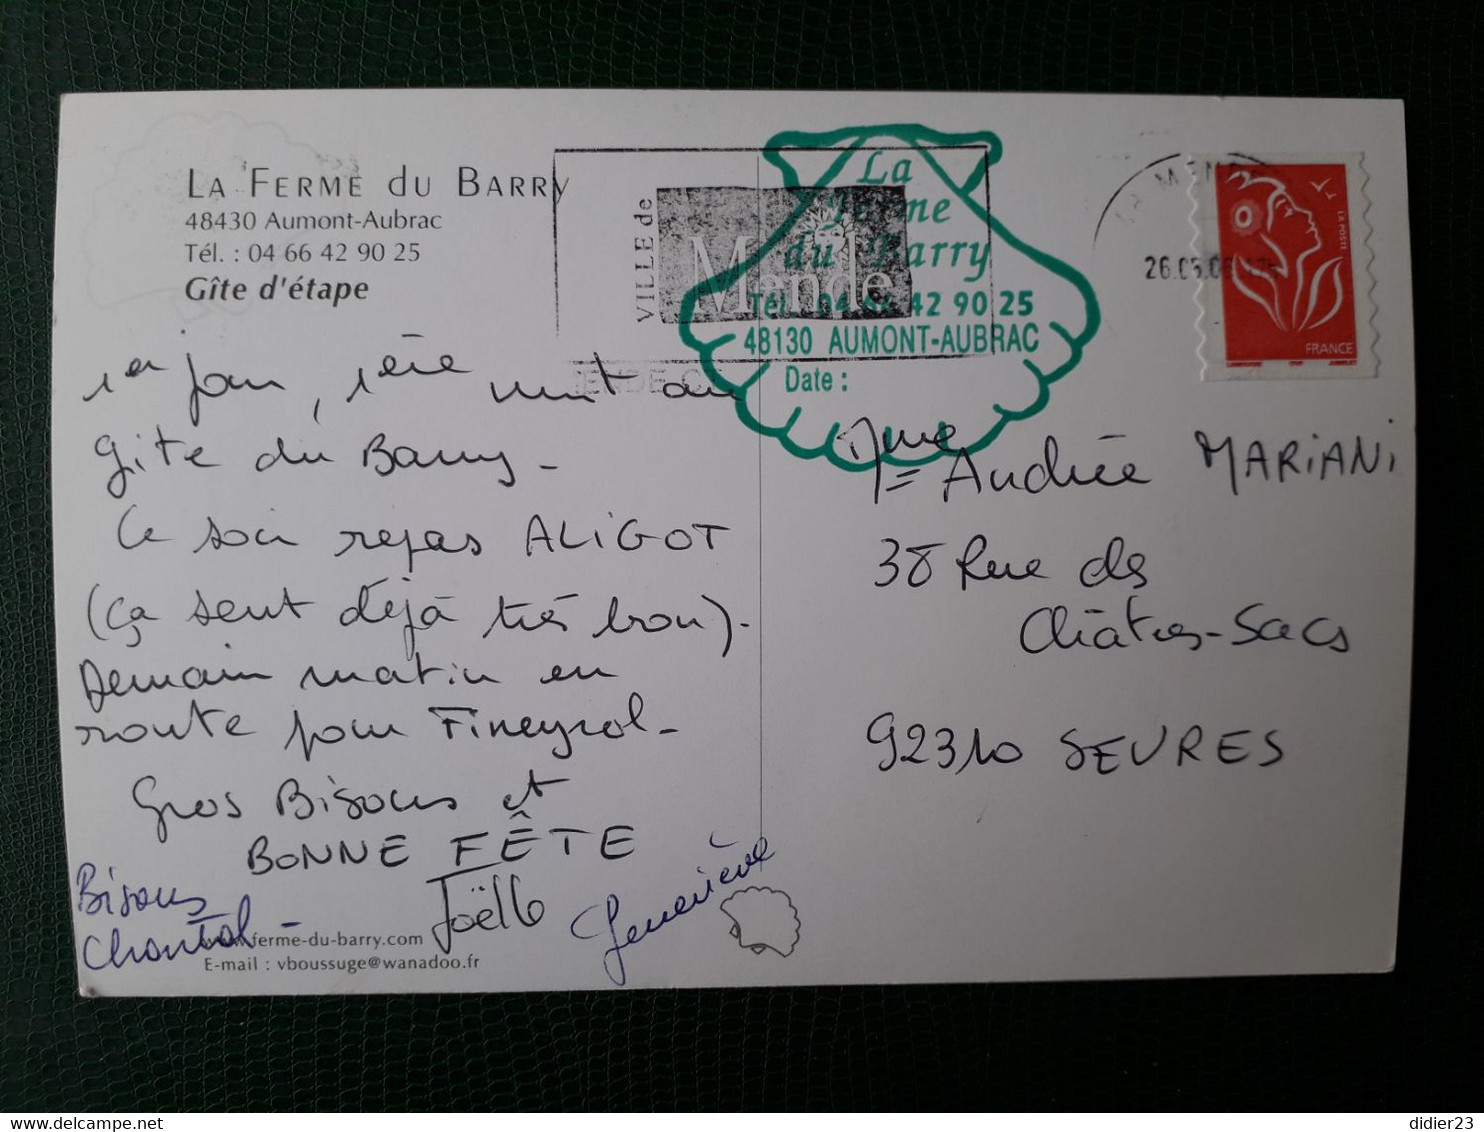 LA FERME DU BARRY
48430 Aumont-Aubrac
Tél. : 04 66 42 90 25
Gîte d'étape
VILLE de
Mende
La
Ferme
du Barry
Tél. 04 66 42 90 25
48130 AUMONT-AUBRAC
Date :
MENDE
26.05.06
LA POSTE
FRANCE
1er jour, 1ère nuit au
Gîte du Barry -
Ce soir repas ALIGOT
(ça sent déjà très bon) -
Demain matin en
route pour Fineyrol -
Gros Bisous et
BONNE FÊTE
Joëlle
Bisous
Chantal -
Geneviève
www.ferme-du-barry.com
E-mail : vboussuge@wanadoo.fr
Mme Andrée MARIANI
38 Rue des
Châtres-Sacs
92310 SEVRES
didier23